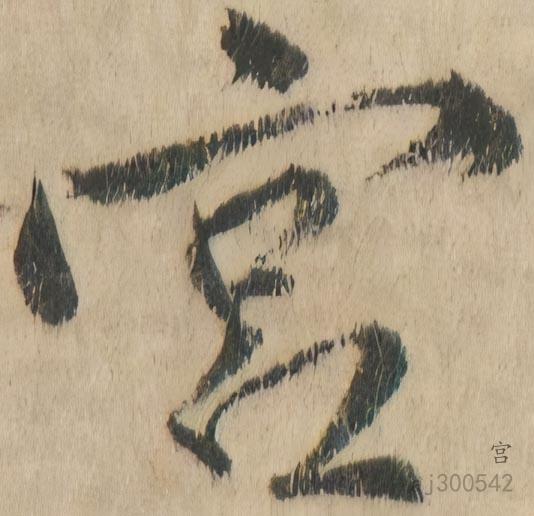 宫
宫
j300542